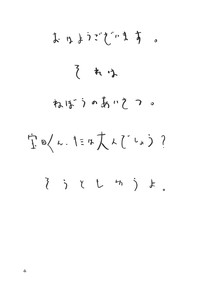 おはようございます。
それは
ねぼうのあいさつ。
宝田くん、たには大人でしょう?
そうとしゆうよ。